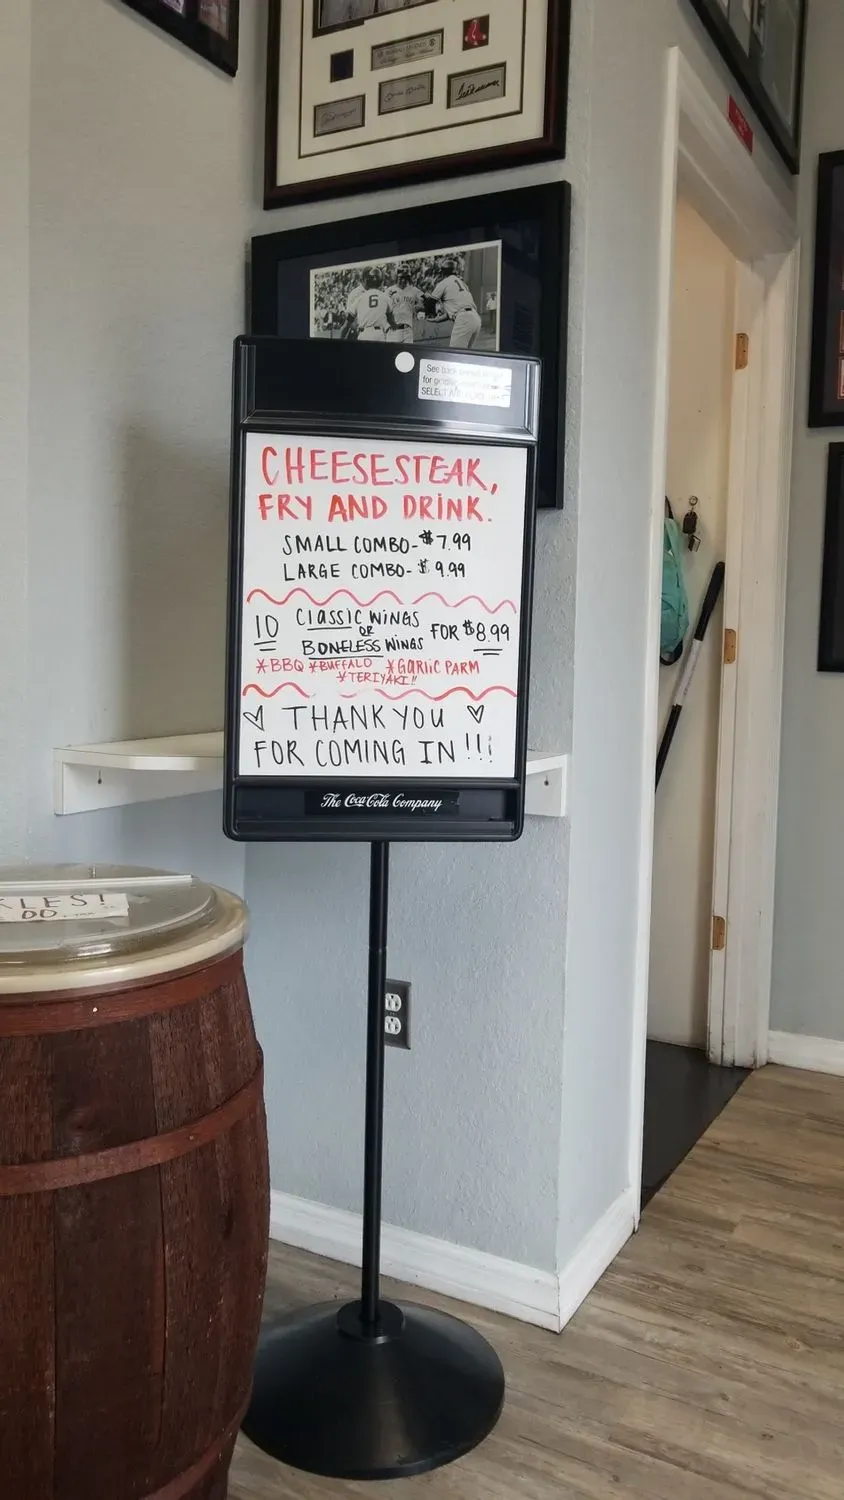 See back
for
SELECT
CHEESESTEAK,
FRY AND DRINK.
SMALL COMBO- $7.99
LARGE COMBO- $9.99
10 CLASSIC WINGS
OR
BONELESS WINGS
FOR $8.99
*BBQ *BUFFALO *GARLIC PARM
*TERIYAKI!!
♡ THANK YOU ♡
FOR COMING IN!!!
The Coca-Cola Company
KLES!
00
6
1